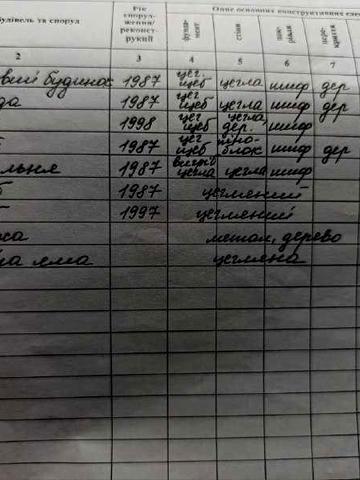 будівель та споруд
Рік спорудження/реконструкції
Опис основних конструктивних
фундамент
стіни
покрівля
перекриття
2 3 4 5 6 7
будинок 1987 цег. щеб цегла шиф дер
1987 цег щеб цегла шиф дер
1998 цег щеб цегла дер. шиф
1987 цег щеб блок шиф дер
1987 цегла цегла шиф
1987 цегляний
1997 цегляний
метал, дерево
яма цегляна